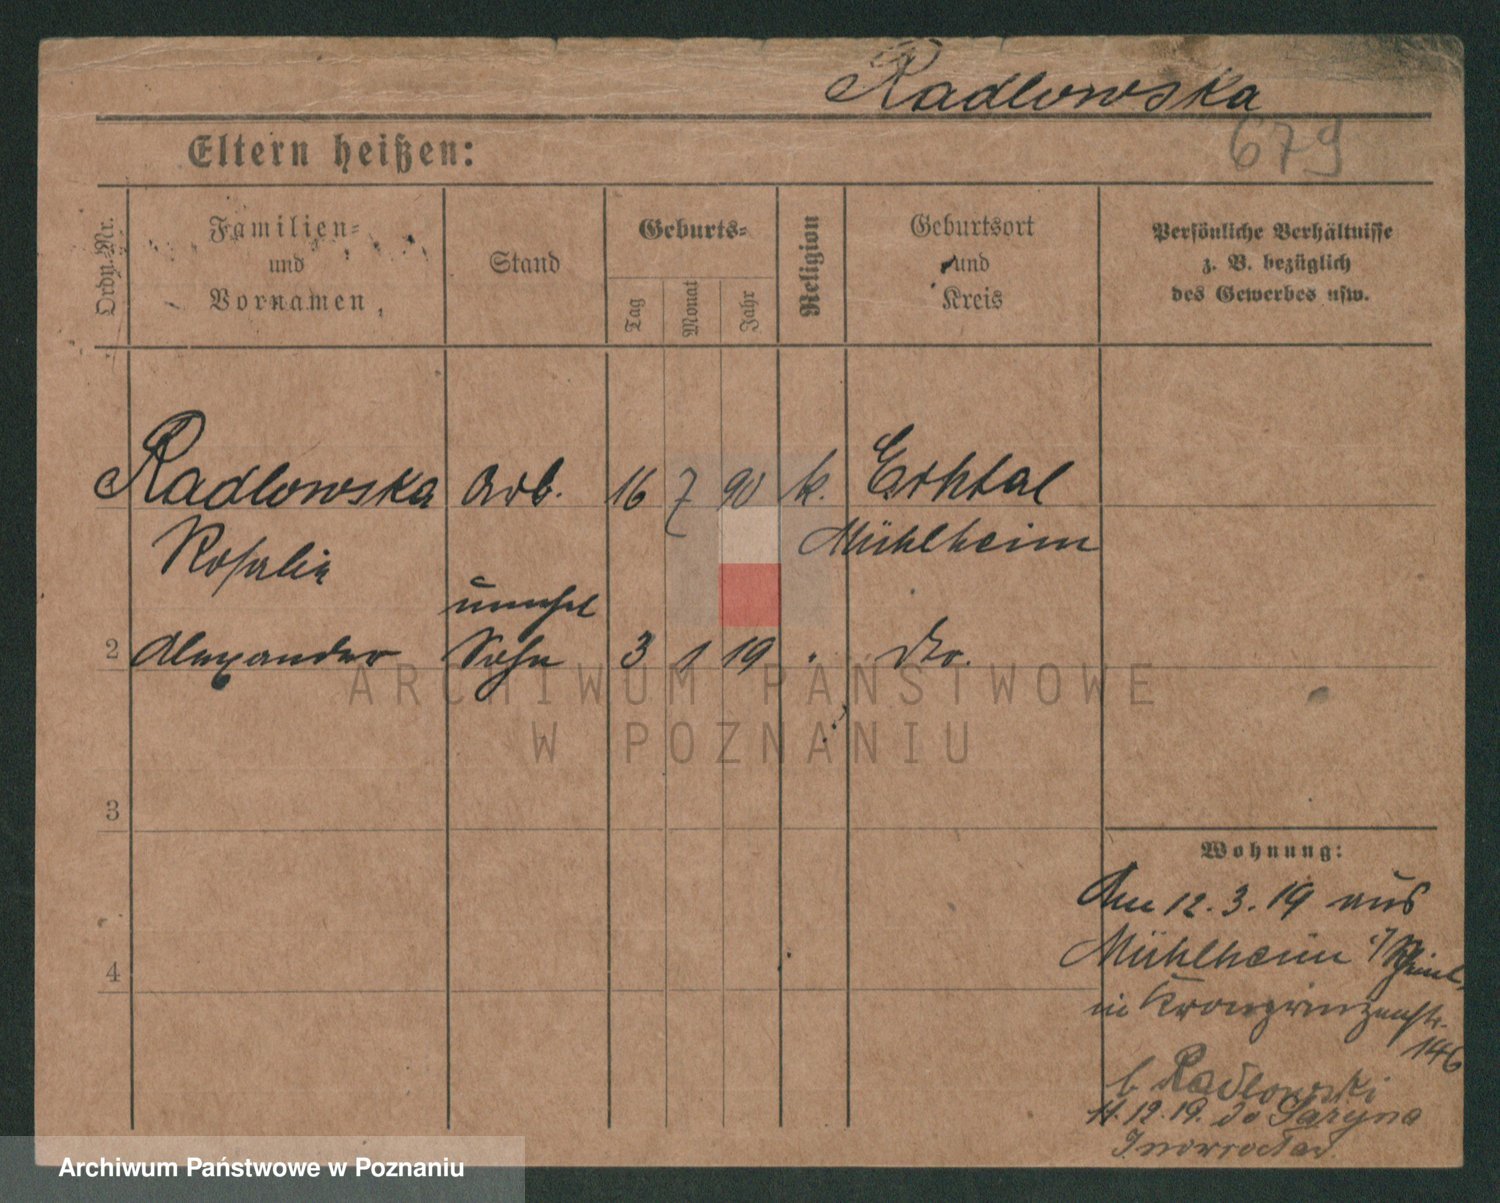 Radlowska
679
Eltern heißen:
Ordn.-Nr.
Familien-
und
Vornamen
Stand
Geburts-
Tag
Monat
Jahr
Religion
Geburtsort
und
Kreis
Persönliche Verhältnisse
z. B. bezüglich
des Gewerbes usw.
Radlowska Arb. 16 7 90 k.
Rosalie Mühlheim
unehel
2 Alexander Sohn 3 1 19 " do.
3
4
Wohnung:
Am 12.3.19 aus
Mühlheim
in Kronprinzenstr.
146
b Radlowski
11.12.19. do
Inowrocław
ARCHIWUM PAŃSTWOWE
W POZNANIU
Archiwum Państwowe w Poznaniu